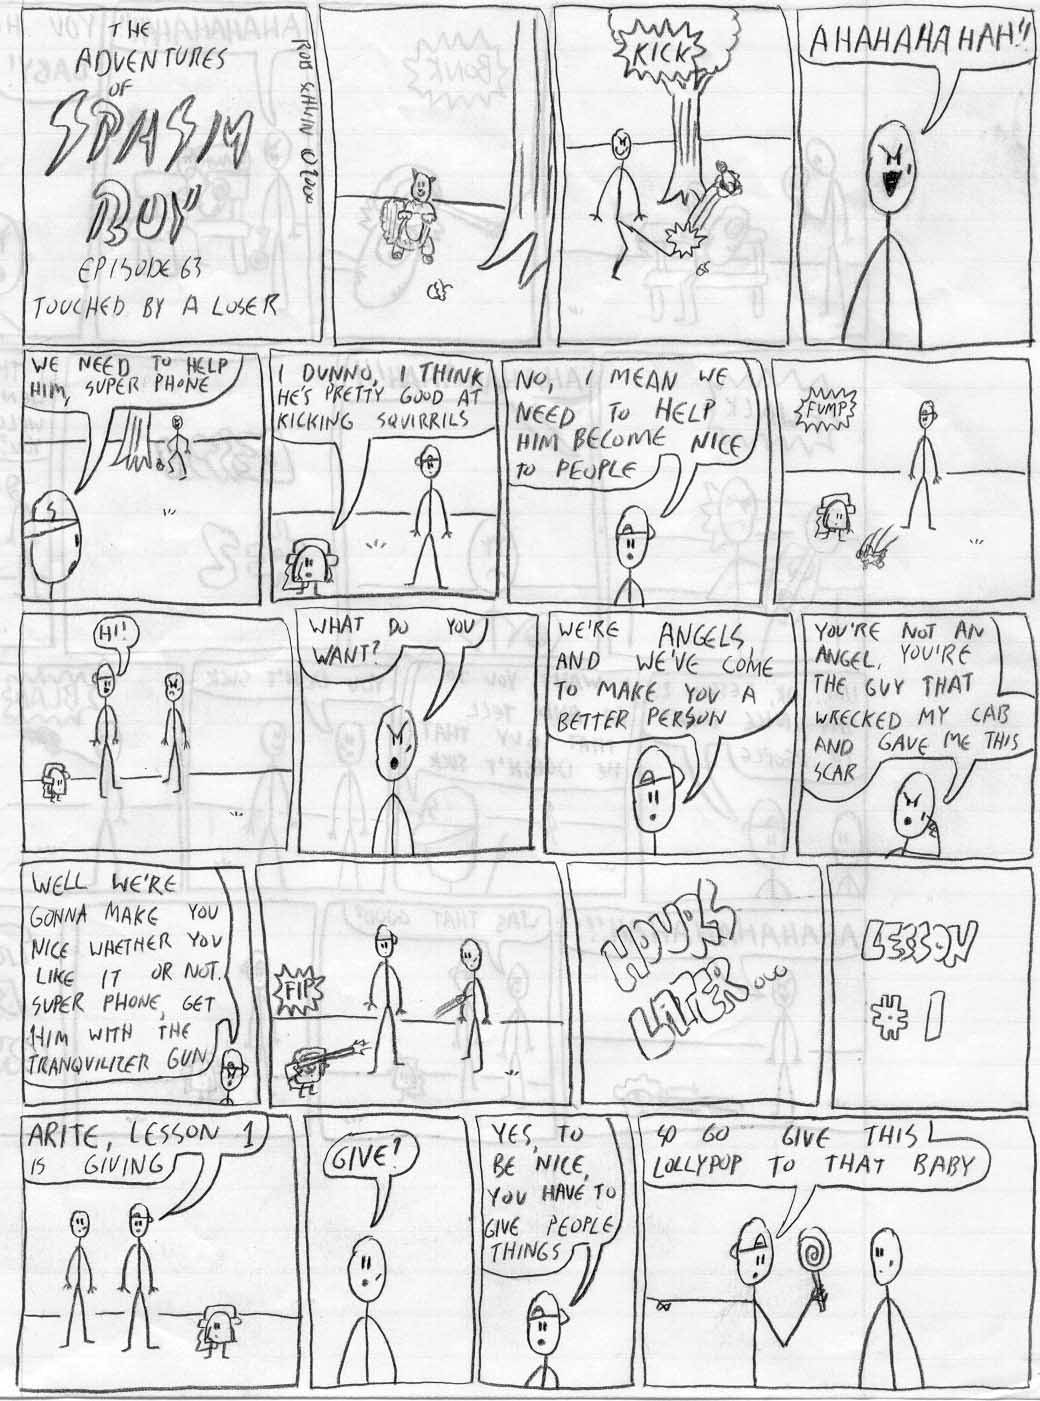 THE
ADVENTURES
OF
SPASM
BOY
EPISODE 63
TOUCHED BY A LOSER
ROB
KICK
AHAHAHAHAH!!
WE NEED TO HELP
HIM, SUPER PHONE
I DUNNO, I THINK
HE'S PRETTY GOOD AT
KICKING SQUIRRILS
NO, I MEAN WE
NEED TO HELP
HIM BECOME NICE
TO PEOPLE
FUMP
HI!
WHAT DO YOU
WANT?
WE'RE ANGELS,
AND WE'VE COME
TO MAKE YOU A
BETTER PERSON
YOU'RE NOT AN
ANGEL, YOU'RE
THE GUY THAT
WRECKED MY CAB
AND GAVE ME THIS
SCAR
WELL WE'RE
GONNA MAKE YOU
NICE WHETHER YOU
LIKE IT OR NOT.
SUPER PHONE, GET
HIM WITH THE
TRANQUILIZER GUN
FIP
HOURS
LATER...
LESSON
# 1
ARITE, LESSON 1
IS GIVING
GIVE?
YES, TO
BE NICE,
YOU HAVE TO
GIVE PEOPLE
THINGS
SO GO GIVE THIS
LOLLYPOP TO THAT BABY